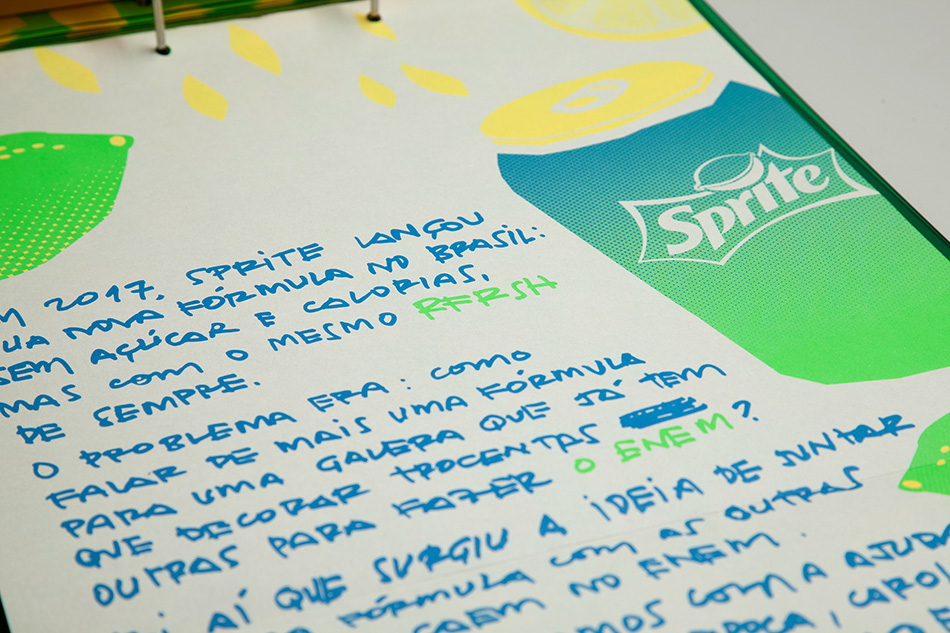 Sprite
M 2017, SPRITE LANÇOU
UA NOVA FÓRMULA NO BRASIL:
SEM AÇÚCAR E CALORIAS,
MAS COM O MESMO RFRSH
DE SEMPRE.
O PROBLEMA ERA: COMO
FALAR DE MAIS UMA FÓRMULA
PARA UMA GALERA QUE JÁ TEM
QUE DECORAR TROCENTAS
OUTRAS PARA FAZER O ENEM?
I AÍ QUE SURGIU A IDEIA DE JUNTAR
FÓRMULA COM AS OUTRAS
CAEM NO ENEM.
MOS COM A AJUDA
CAROL